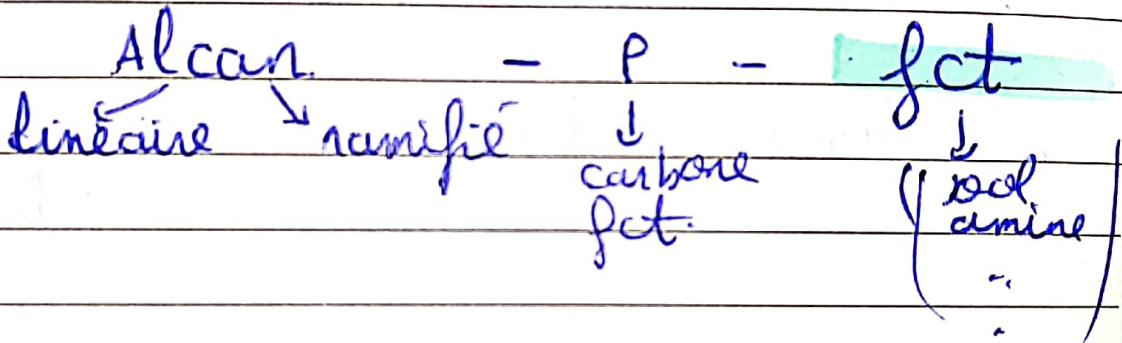 Alcan - P - fct
linéaire ramifié carbone fct. (ol amine